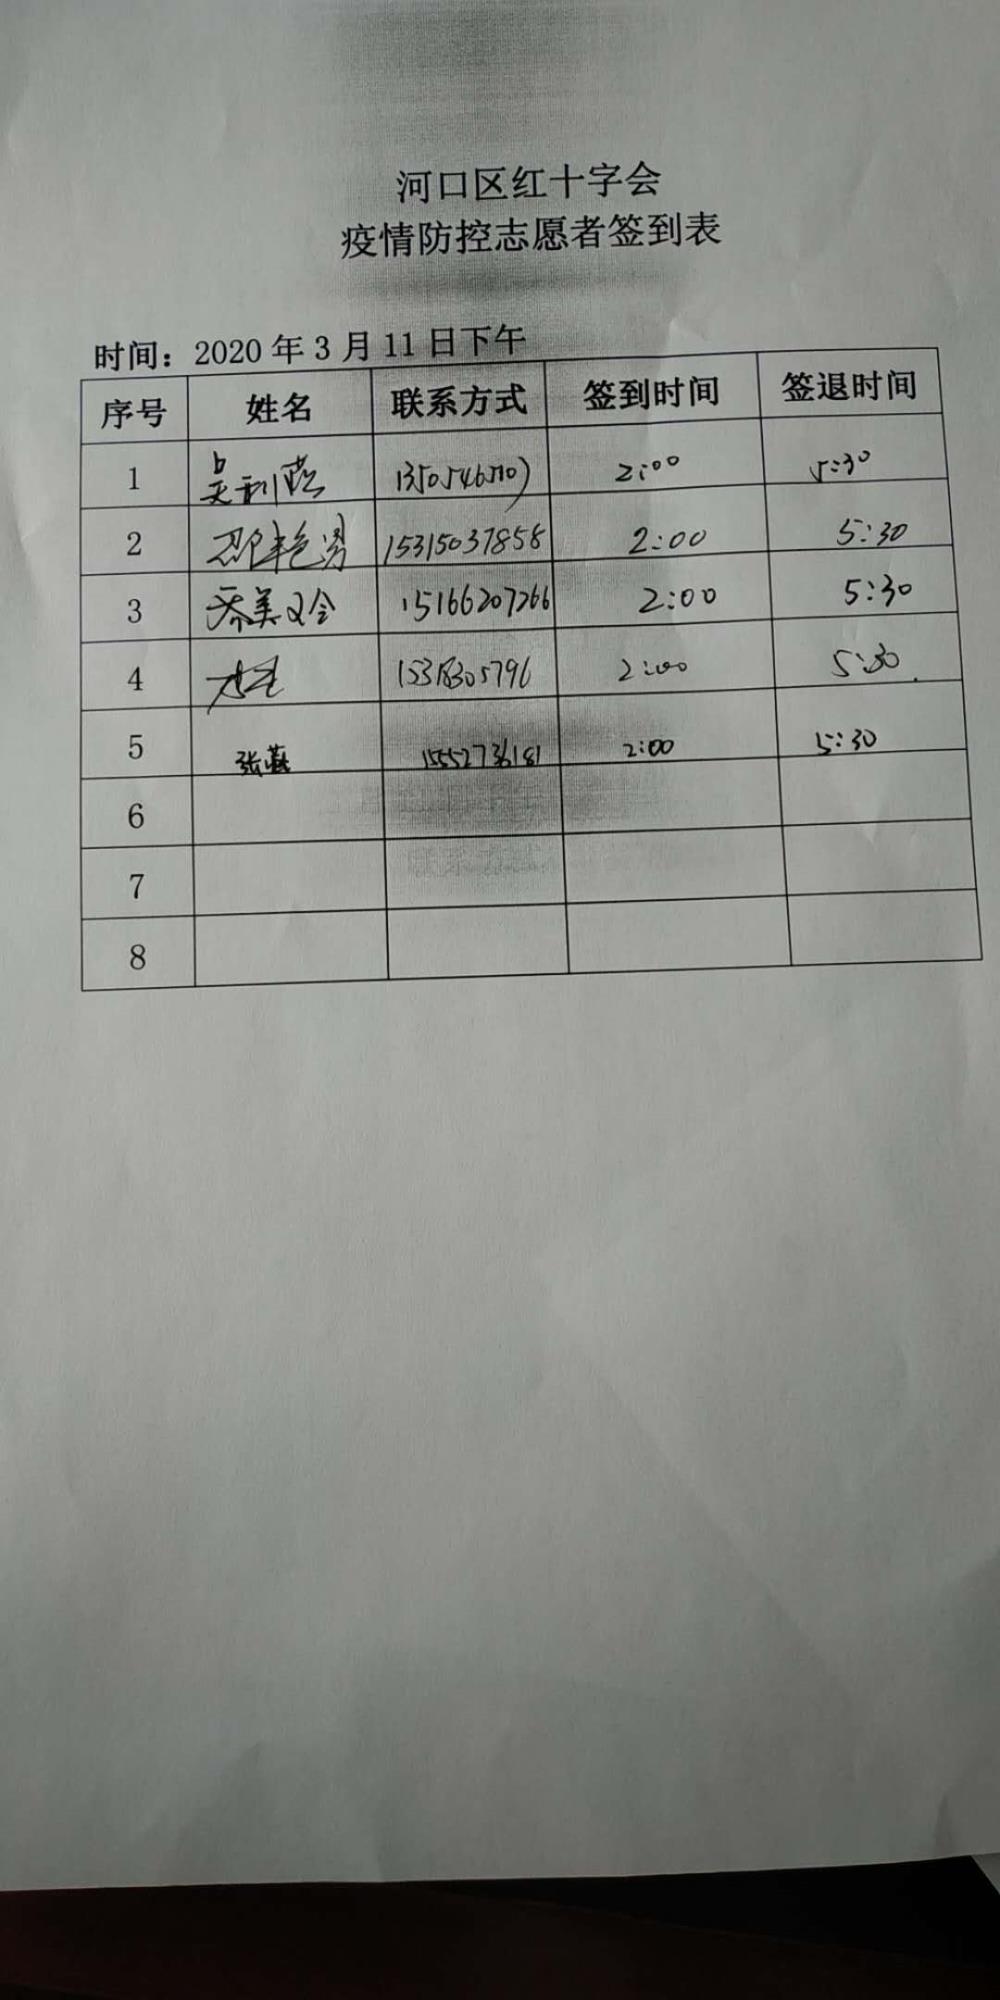 河口区红十字会
疫情防控志愿者签到表
时间：2020年3月11日下午
序号 姓名 联系方式 签到时间 签退时间
1 吴利 2:00 5:30
2 艳男 15315037858 2:00 5:30
3 乔美玲 15166207266 2:00 5:30
4 2:00 5:30
5 张燕 15552736181 2:00 5:30
6
7
8